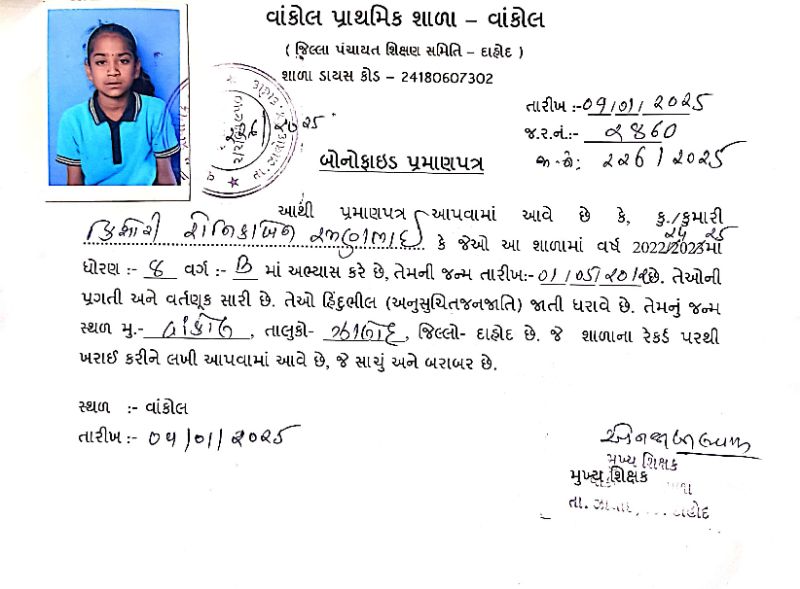 વાંકોલ પ્રાથમિક શાળા – વાંકોલ
( જિલ્લા પંચાયત શિક્ષણ સમિતિ – દાહોદ )
શાળા ડાયસ કોડ – 24180607302
તારીખ :- 09/01/2025
જ.ર.નં.:- ૨૪60
226/2025
બોનોફાઇડ પ્રમાણપત્ર
આથી પ્રમાણપત્ર આપવામાં આવે છે કે, કુ./કુમારી
24 25
કિશોરી કે જેઓ આ શાળામાં વર્ષ 2022/2023માં
ધોરણ :- 8 વર્ગ :- B માં અભ્યાસ કરે છે, તેમની જન્મ તારીખ:- 01/05/201 છે. તેઓની
પ્રગતી અને વર્તણૂક સારી છે. તેઓ હિંદુભીલ (અનુસુચિતજનજાતિ) જાતી ધરાવે છે. તેમનું જન્મ
સ્થળ મુ.- વાંકોલ, તાલુકો- ઝાલોદ, જિલ્લો- દાહોદ છે. જે શાળાના રેકર્ડ પરથી
ખરાઈ કરીને લખી આપવામાં આવે છે, જે સાચું અને બરાબર છે.
સ્થળ :- વાંકોલ
તારીખ :- 09/01/2025
મુખ્ય શિક્ષક
મુખ્ય શિક્ષક
તા. દાહોદ